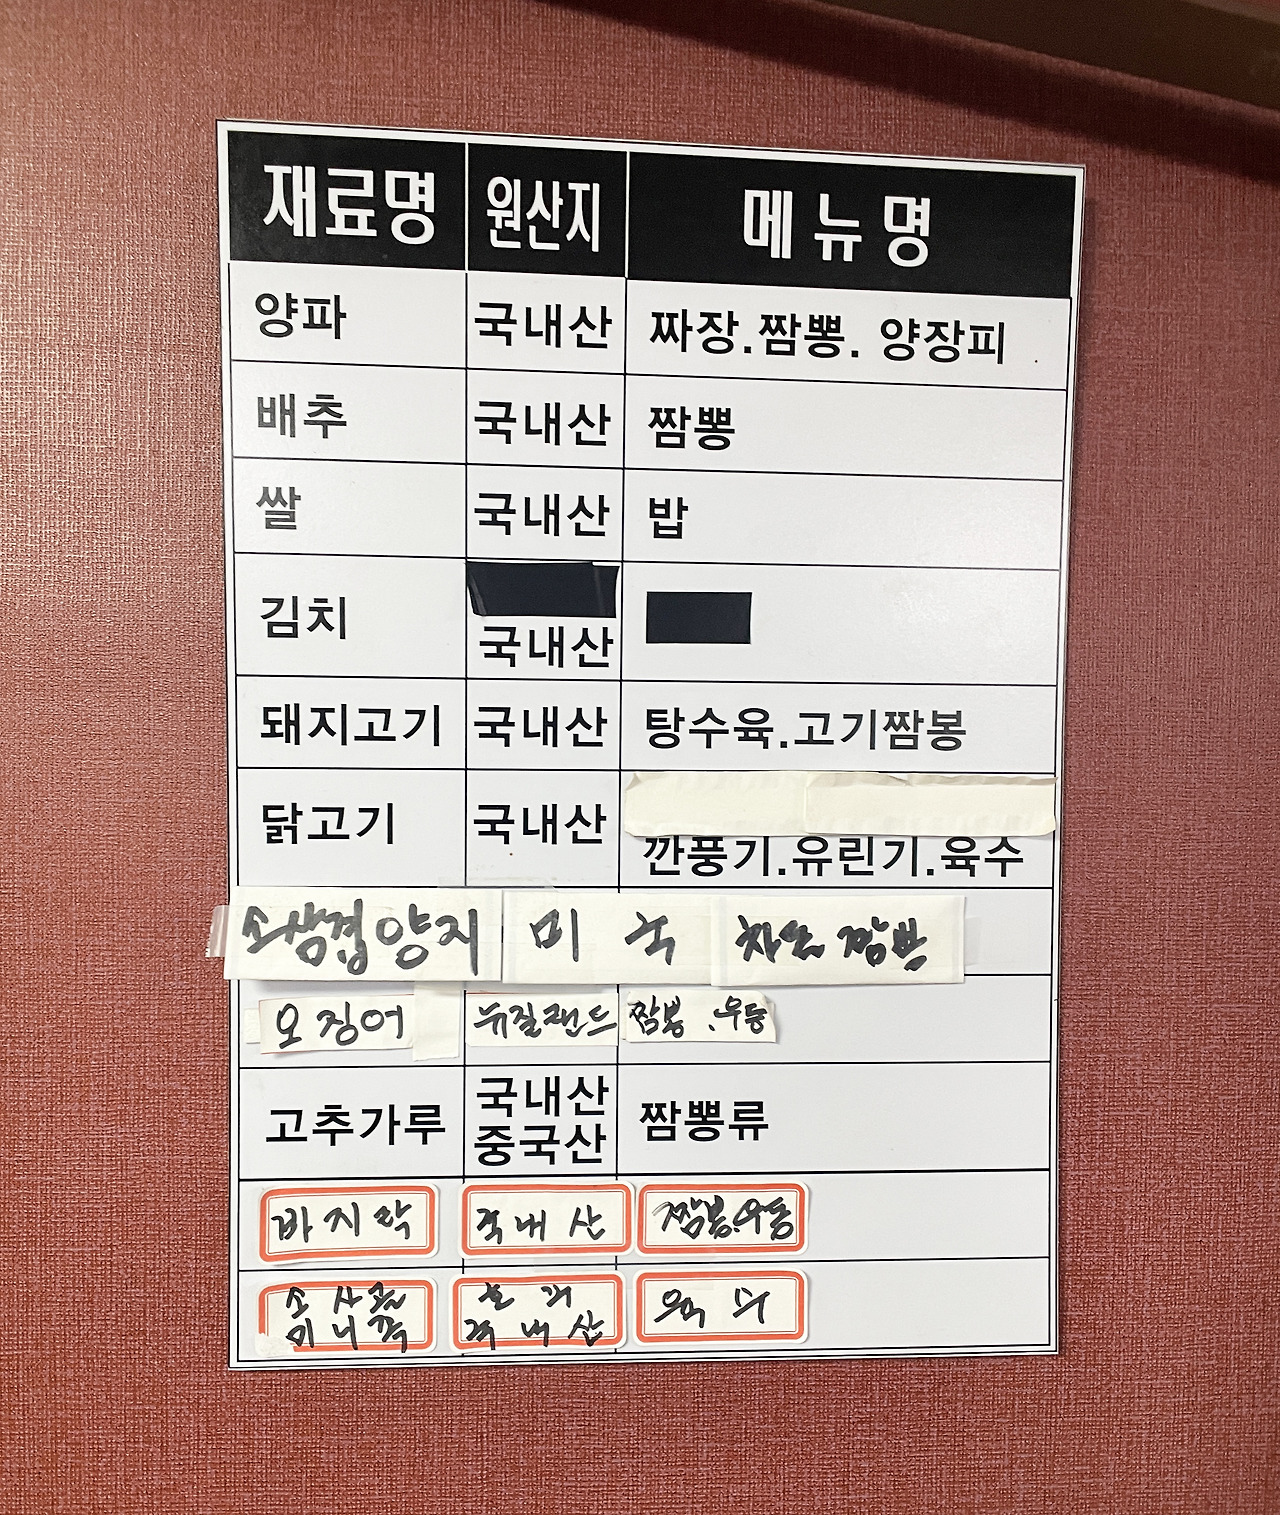 재료명 원산지 메뉴명
양파 국내산 짜장.짬뽕. 양장피
배추 국내산 짬뽕
쌀 국내산 밥
김치 국내산
돼지고기 국내산 탕수육.고기짬봉
닭고기 국내산
깐풍기.유린기.육수
소삼겹양지 미국 차돌짬뽕
오징어 뉴질랜드 짬봉.우동
고추가루 국내산 짬뽕류
중국산
바지락 국내산 짬봉.우동
소사골 호주
국내산
육수